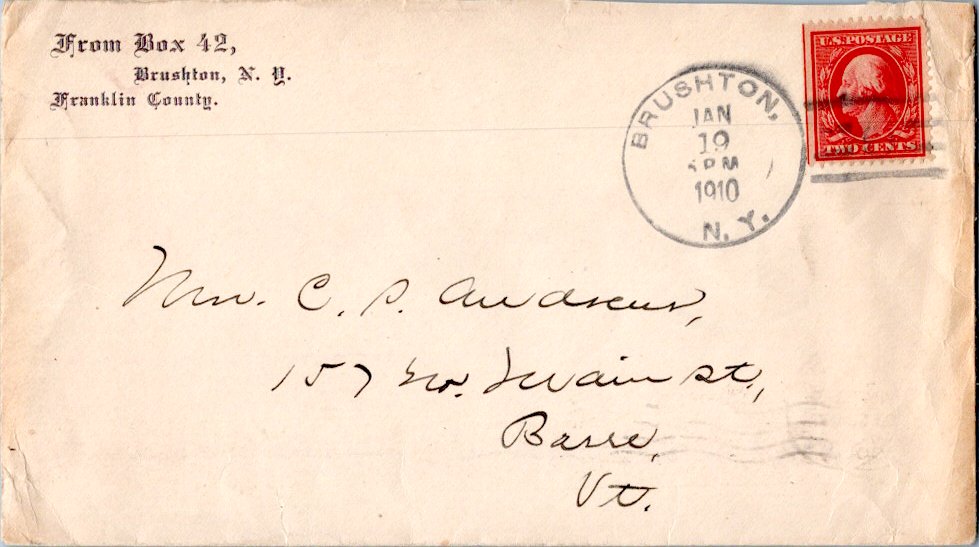 From Box 42,
Brushton, N. Y.
Franklin County.
U.S. POSTAGE
TWO CENTS
BRUSHTON,
JAN
19
PM
1910
N. Y.
C. S. Andrews,
157 No. Main st.,
Barre,
Vt.